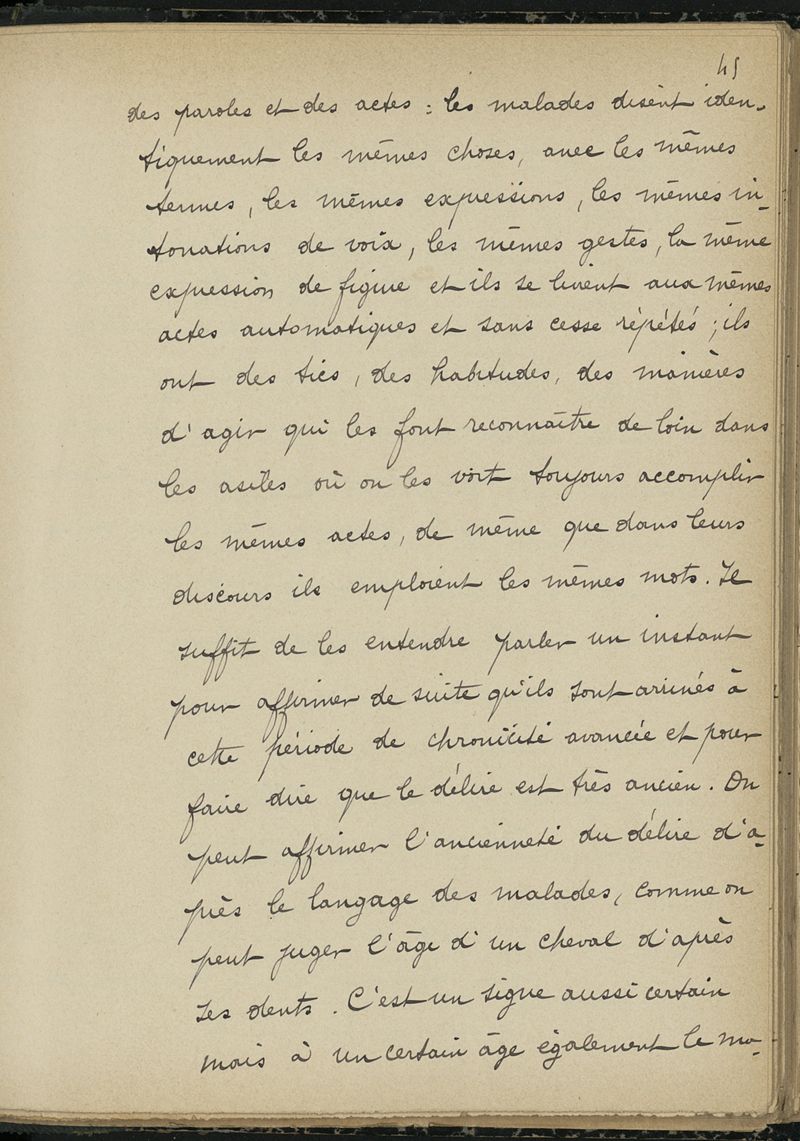 45
des paroles et des actes : les malades disent iden-
tiquement les mêmes choses, avec les mêmes
termes, les mêmes expressions, les mêmes in-
tonations de voix, les mêmes gestes, la même
expression de figure et ils se livrent aux mêmes
actes automatiques et sans cesse répétés ; ils
ont des tics, des habitudes, des manières
d'agir qui les font reconnaître de loin dans
les asiles où on les voit toujours accomplir
les mêmes actes, de même que dans leurs
discours ils emploient les mêmes mots. Il
suffit de les entendre parler un instant
pour affirmer de suite qu'ils sont arrivés à
cette période de chronicité avancée et pour
faire dire que le délire est très ancien. On
peut affirmer l'ancienneté du délire d'a-
près le langage des malades, comme on
peut juger l'âge d'un cheval d'après
ses dents. C'est un signe aussi certain
mais à un certain âge également le ma-